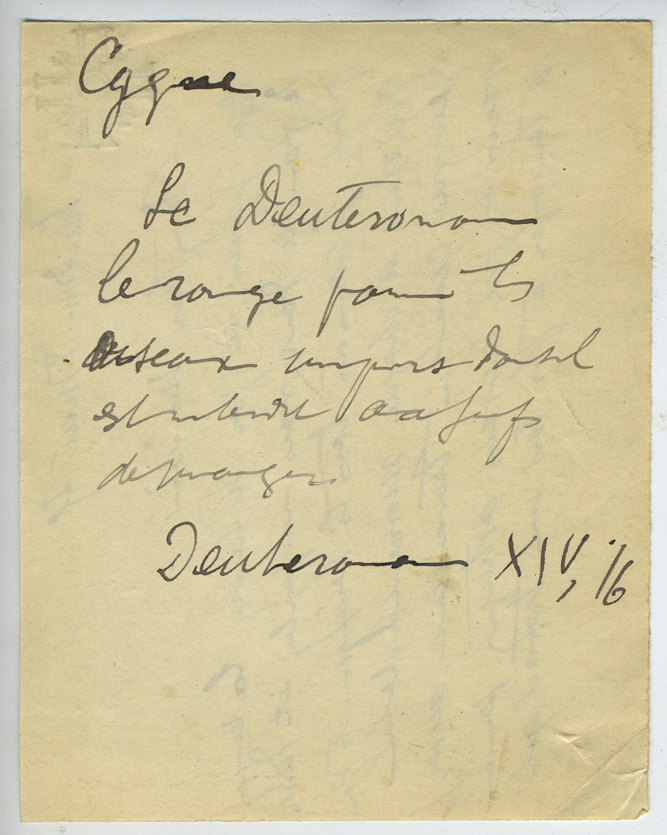 Cygne
Le Deuteronome
le range parmi les
oiseaux impurs dont il
est interdit aux Juifs
de manger
Deuteronome XIV, 16